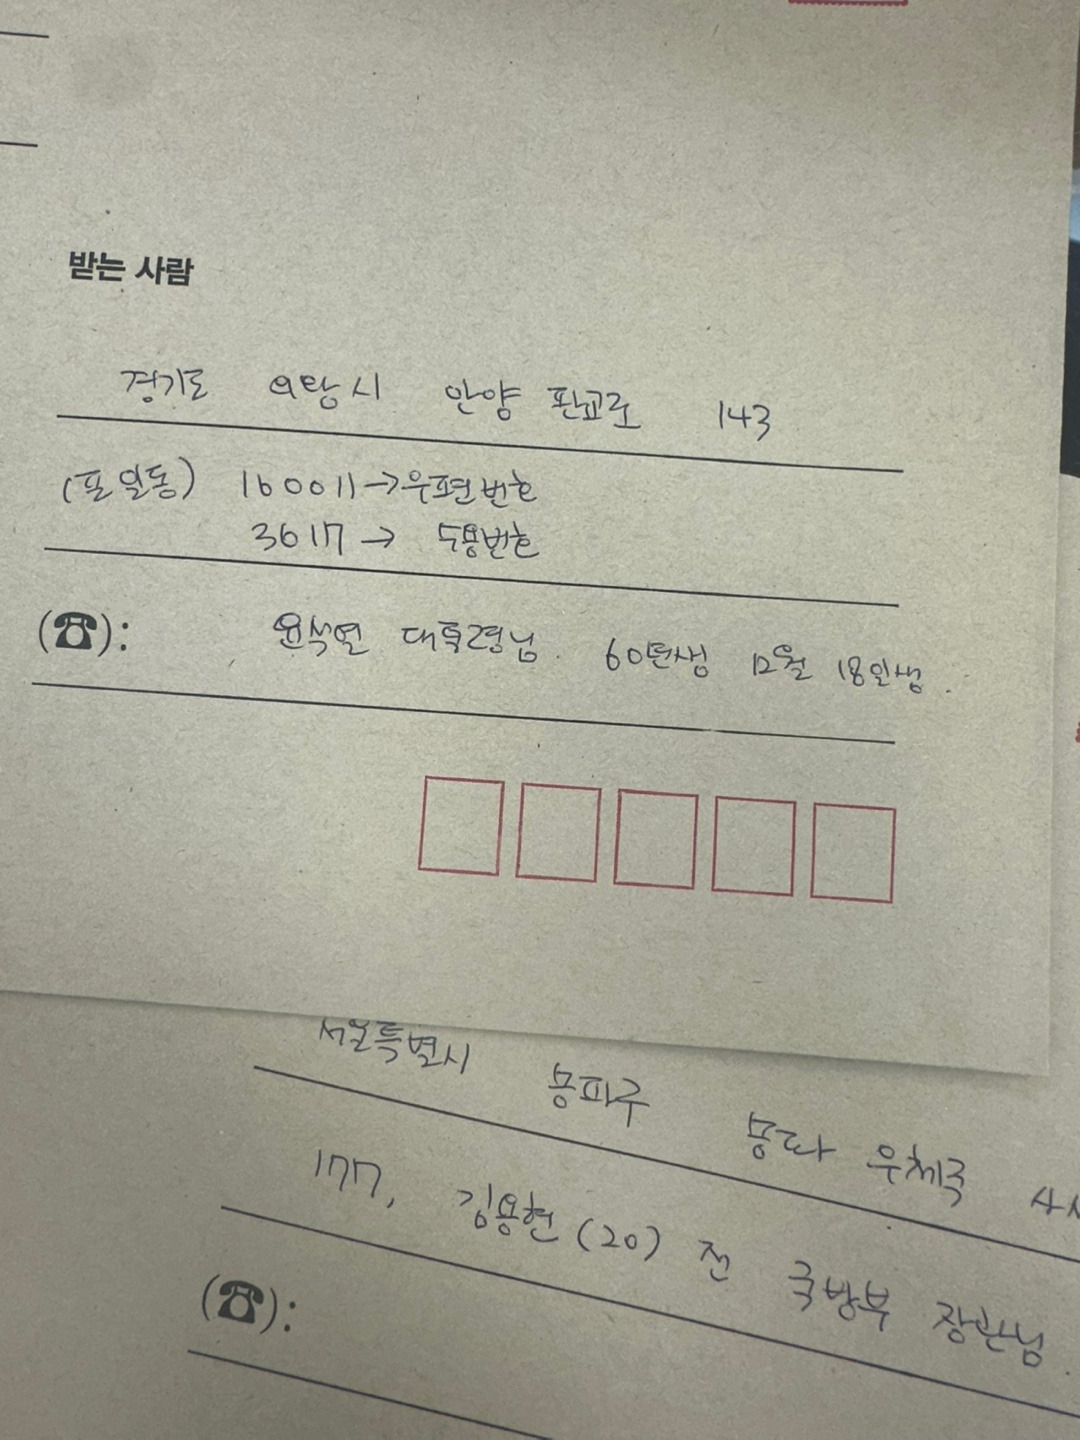 받는 사람
경기도 의왕시 안양 판교로 143
(포일동) 160011→우편번호
3617→ 수용번호
(☎): 윤석열 대통령님. 60년생 12월 18일생.
서울특별시 송파구 송파 우체국 사서
177, 김용현(20) 전 국방부 장관님
(☎):